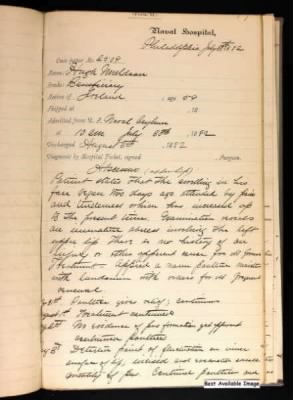 (Form M.)
Naval Hospital,
Philadelphia, July 1882
Case paper No. 2409
Name: Hugh
Grade: Beneficiary
Native of Ireland , age 59
Shipped at , 18
Admitted from U. S. Naval Asylum
at 10 am July 1882
Discharged August 1882
Diagnosis by Hospital Ticket, signed , Surgeon.
Abscessus (upper lip)
Patient states that the swelling in his
face began two days ago attended by pain
and tenderness which has increased up
to the present time. Examination reveals
an abscess involving the left
upper lip. There is no history of an
injury or other apparent cause for its
Treatment. Applied a warm poultice
with laudanum with orders for its frequent
renewal.
Poultice gives relief; continued
Treatment continued
No evidence of pus formation yet apparent
continue poultice
Detected point of fluctuation on inner
surface of lip, incised and evacuated small
quantity of pus. Continued poultice
Best Available Image